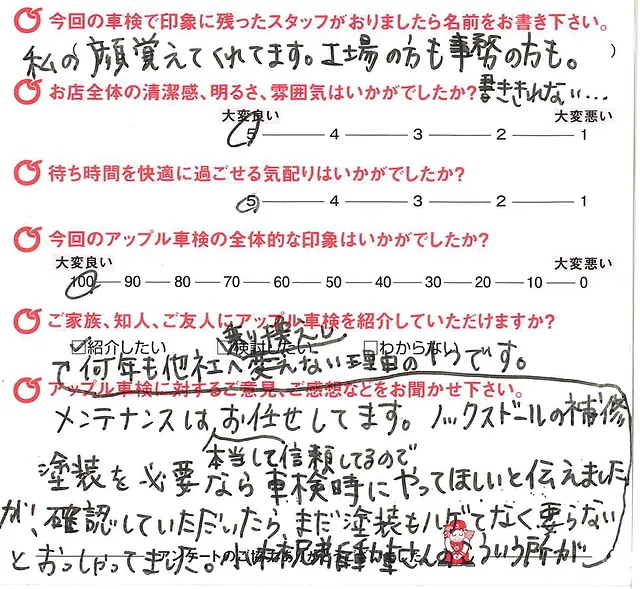 今回の車検で印象に残ったスタッフがおりましたら名前をお書き下さい。
私の顔覚えてくれてます。工場の方も事務の方も。
)
書ききれない...
お店全体の清潔感、明るさ、雰囲気はいかがでしたか?
大変良い 大変悪い
5 4 3 2 1
待ち時間を快適に過ごせる気配りはいかがでしたか?
5 4 3 2 1
今回のアップル車検の全体的な印象はいかがでしたか?
大変良い 大変悪い
100 90 80 70 60 50 40 30 20 10 0
ご家族、知人、ご友人にアップル車検を紹介していただけますか?
紹介したい 検討したい わからない
何年も他社へ変えない理由の1つです。
アップル車検に対するご意見、ご感想などをお聞かせ下さい。
メンテナンスはお任せしてます。ノックスドールの補修
本当して信頼してるので
塗装を必要なら車検時にやってほしいと伝えました
が、確認していただいたら、まだ塗装もハゲてなく要らない
とおっしゃってました。 さんのこういう所が